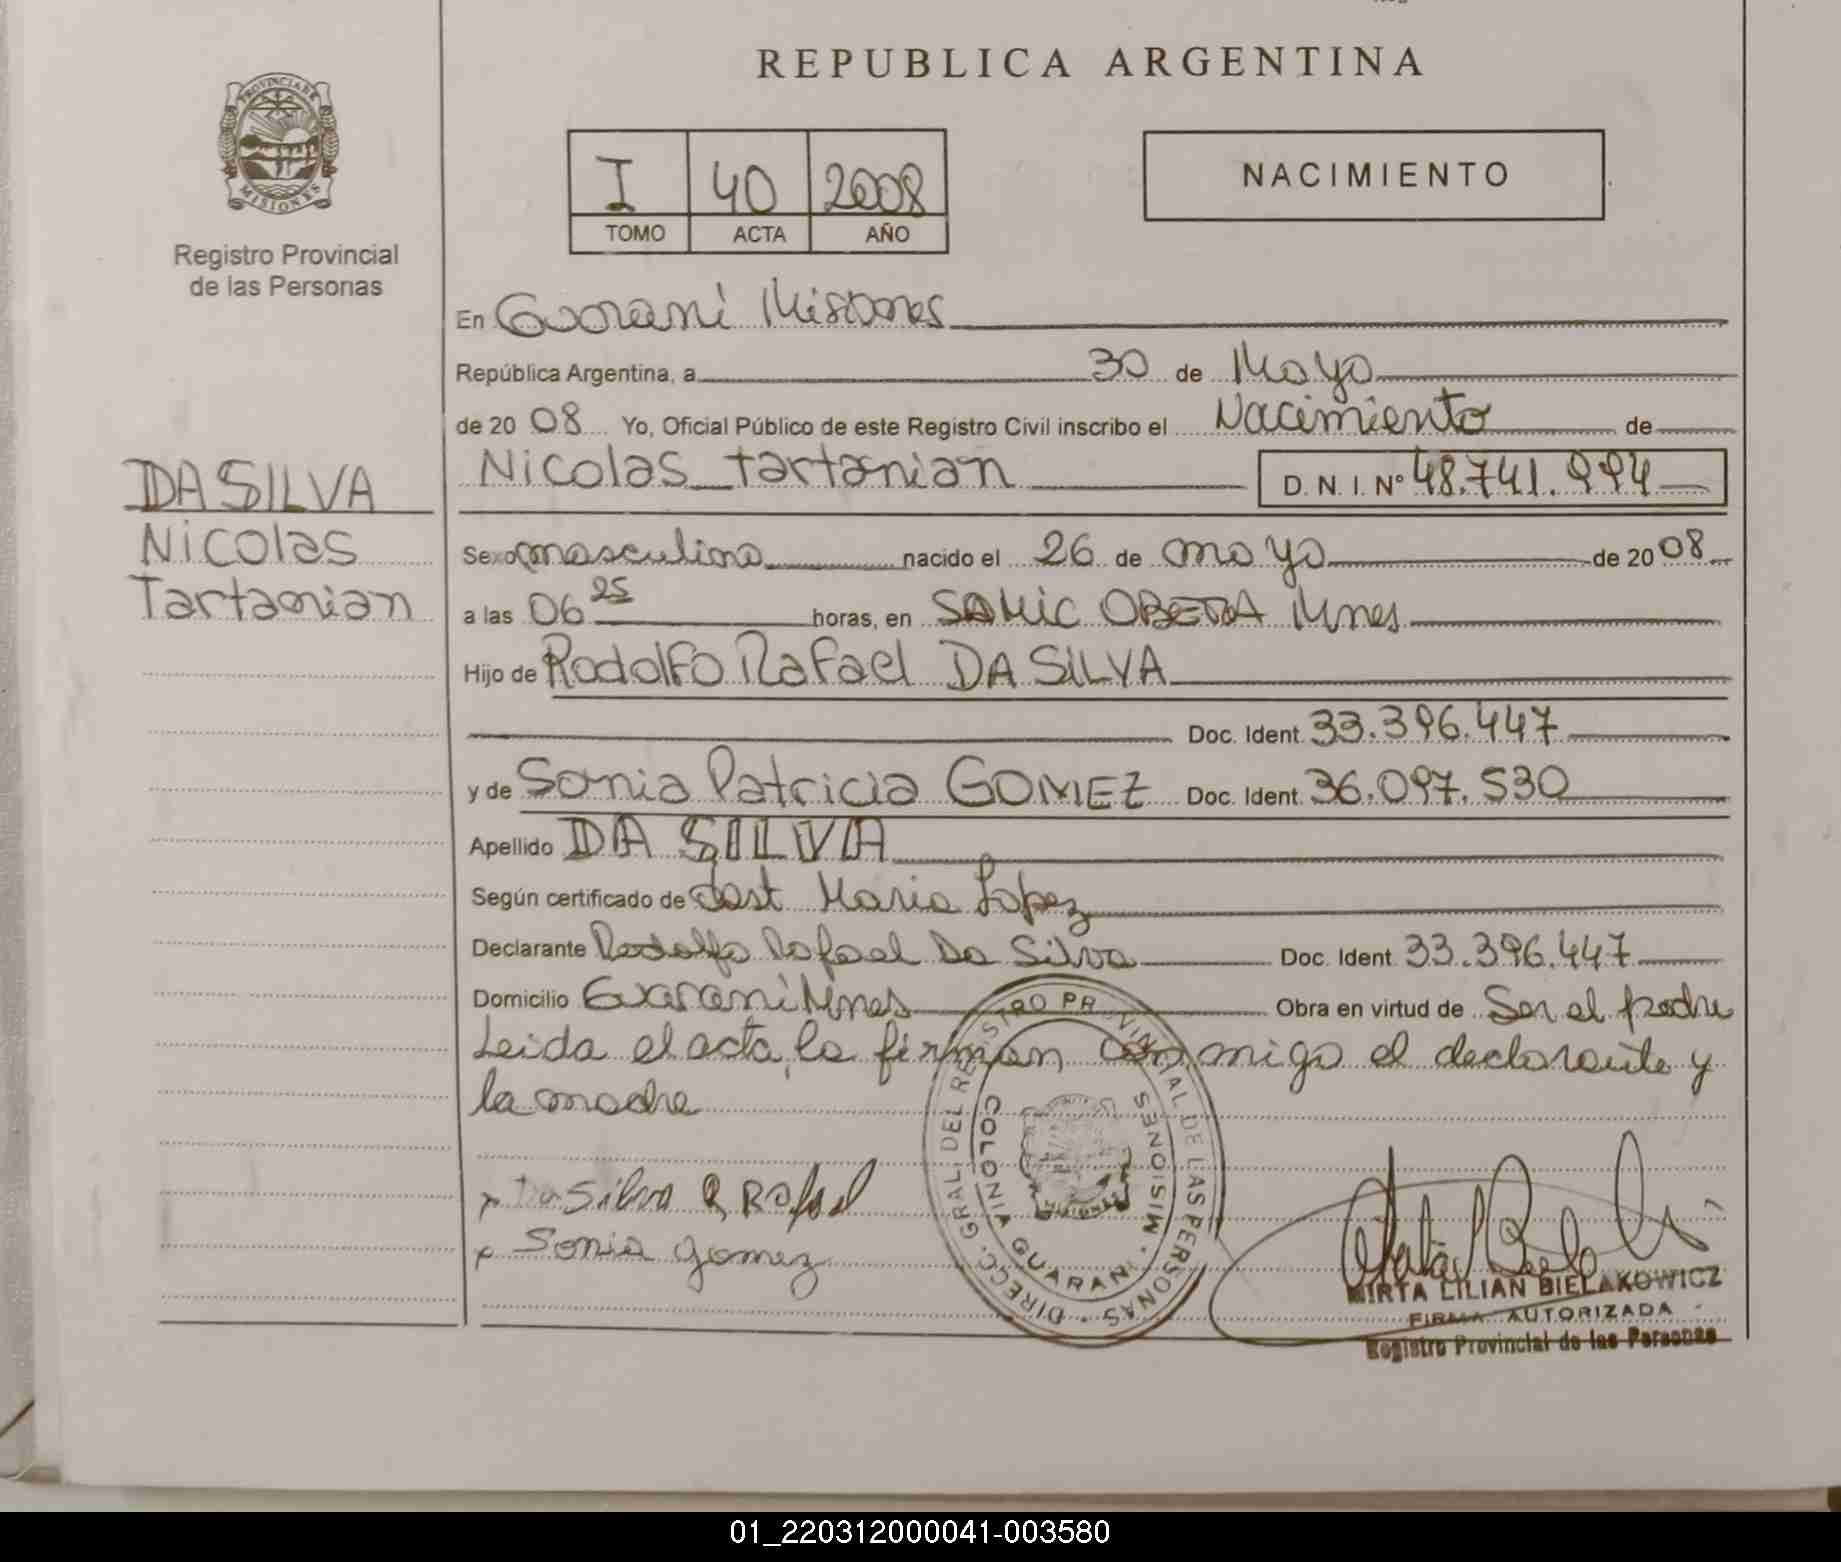 REPUBLICA ARGENTINA
PROVINCIA DE MISIONES
Registro Provincial
de las Personas
I 40 2008
TOMO ACTA AÑO
NACIMIENTO
En Guarani Misiones
República Argentina, a 30 de Mayo
de 20 08 Yo, Oficial Público de este Registro Civil inscribo el Nacimiento de
Nicolas tartanian D. N. I. Nº 48.741.994
DA SILVA
Nicolas
Tartanian
Sexo masculino nacido el 26 de mayo de 20 08
a las 06 25 horas, en SAMIC OBERA Mnes
Hijo de Rodolfo Rafael DA SILVA
Doc. Ident. 33.396.447
y de Sonia Patricia GOMEZ Doc. Ident. 36.097.530
Apellido DA SILVA
Según certificado de obst Maria Lopez
Declarante Rodolfo Rafael Da Silva Doc. Ident. 33.396.447
Domicilio Guarani Mnes Obra en virtud de Ser el padre
Leida el acta, la firman conmigo el declarante y
la madre
DIRECC. GRAL. DEL REGISTRO PROVINCIAL DE LAS PERSONAS
COLONIA GUARANI MISIONES
x Da Silva R Rafael
x Sonia gomez
MIRTA LILIAN BIELAKOWICZ
FIRMA AUTORIZADA
Registro Provincial de las Personas
01_220312000041-003580